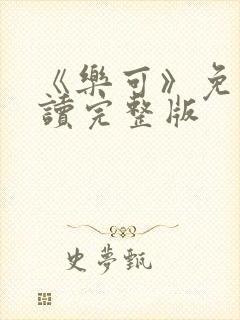 《樂可》免
讀完整版
史夢甄